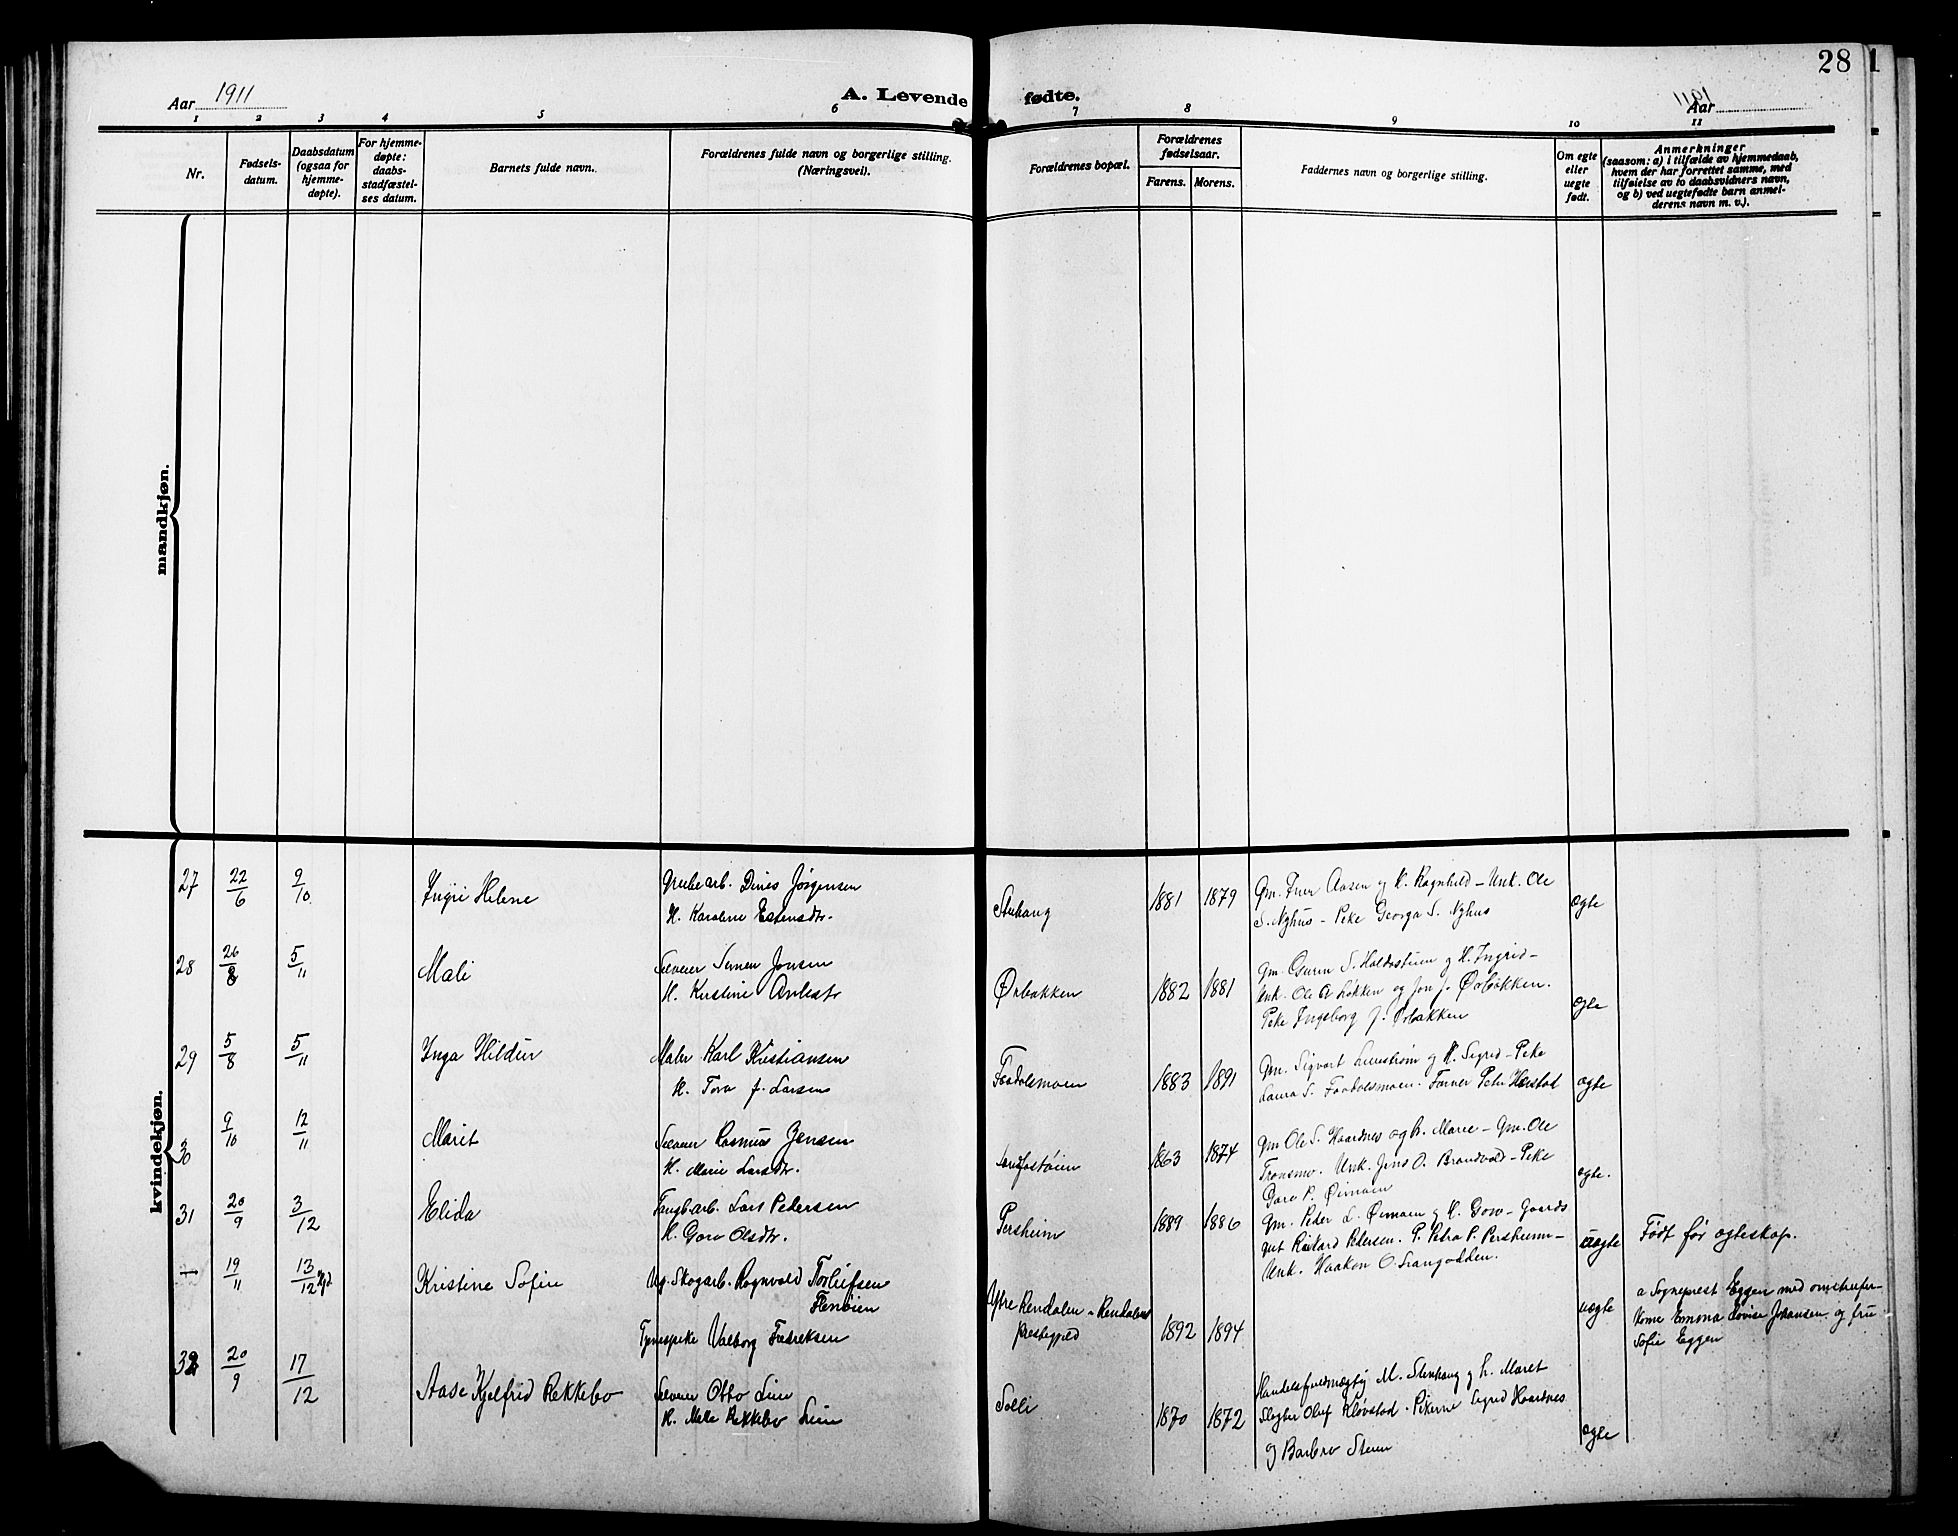 28 1
Aar 1911
A. Levende fødte.
Aar
1 2 3 4 5 6 7 8 9 10 11
Nr.
Fødsels-
datum.
Daabsdatum
(ogsaa for
hjemme-
døpte).
For hjemme-
døpte:
daabs-
stadfæstel-
ses datum.
Barnets fulde navn.
Forældrenes fulde navn og borgerlige stilling.
(Næringsvei).
Forældrenes bopæl.
Forældrenes
fødselsaar.
Farens. Morens.
Faddernes navn og borgerlige stilling.
Om egte
eller
uegte
født.
Anmerkninger
(saasom: a) i tilfælde av hjemmedaab,
hvem der har forrettet samme, med
tilføielse av to daabsvidners navn,
og b) ved uegtefødte barn anmel-
derens navn m. v.).
mandkjøn.
kvindekjøn.
27 22/6 9/10 Helene Grubearb. Dines Jörgensen
H. Karoline Estensdtr.
1881 1879
Gm. Aasen og H. Ragnhild - Unk. Ole
S. Nyhus - Pike Georga S. Nyhus
egte
28 26/8 5/11 Mali Selveier Jonsen
H. Kirstine
Ørbakken 1882 1881
Gm. S. og H. Ingrid -
Unk. Ole A Løkken og Jon J. Ørbakken.
Pike Ingeborg J. Ørbakken
egte
29 5/8 5/11 Inga Hildur Maler Karl Kristiansen
H. Tora J. Larsen
Faadalsmoen 1883 1891
Gm. Sigvart og H. Sigrid - Pike
Laura S. Faadalsmoen. Peter
egte
30 9/10 12/11 Marit Selveier Rasmus Jensen
H. Marie Larsdtr.
1863 1874
Gm Ole S. Haardnes og h. Marie - Gm. Ole
Tronsmo. Unk. Jens O. Brandvold - Pike
P. Øimoen
egte.
31 20/9 3/12 Elida Lars Pedersen
H. Goro Olsdtr.
Persheim 1889 1886
Gm. Peder L. Øimoen og H. Goro - Gaards
gut Rikard Pedersen. P. Petra P. Persheim -
Unk. Haakon O.
uegte Født før egteskap.
— 19/11 13/12 Kristine Sofie Ug. Skogarb. Ragnvald Torleifsen
Tjenestpike Valborg Fredriksen
Ytre Rendalen - Rendalens
prestegjeld
1892 1894
uegte
a Sogneprest Eggen med
kone Emma Lovise Johansen og fru
Sofie Eggen
32 20/9 17/12 Aase Kjelfrid Rekkebo Selveier Otto Lien
H. Rekkebo Lien
Solli 1870 1872
M. Stenhaug og h. Maret
Slagter Oluf Kløvstad. Pikerne Sigrid Haardnes
og Barbro Steien
egte